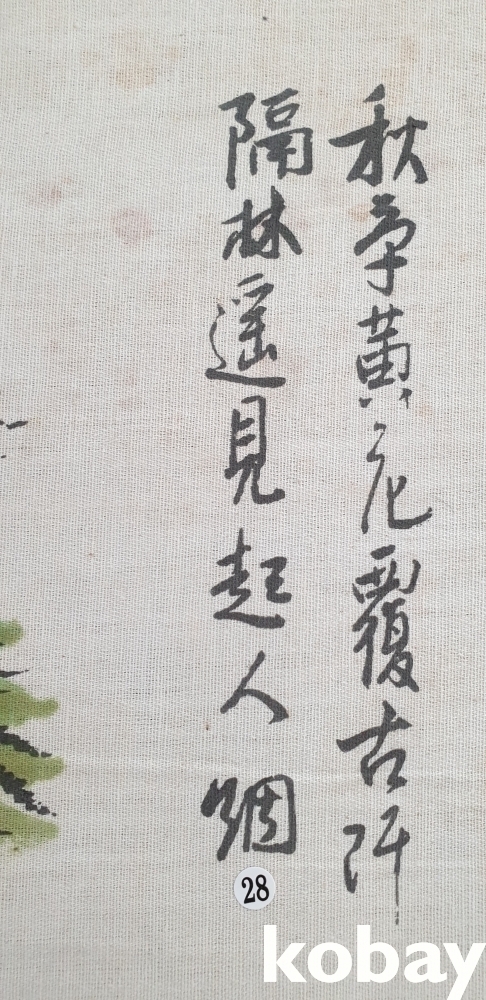 秋草黃花覆古阡
隔林遙見起人烟
28
kobay